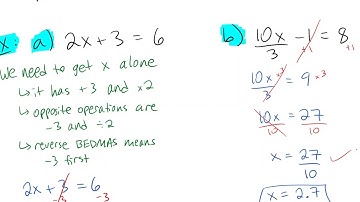 x: a) 2x + 3 = 6
We need to get x alone
↳ it has +3 and x2
↳ opposite operations are
-3 and ÷2
↳ reverse BEDMAS means
-3 first
2x + 3 = 6
-3 -3
b) 10x/3 - 1 = 8
+1 +1
10x/3 = 9 ×3
×3
10x/10 = 27/10
x = 27/10 ✓
x = 2.7